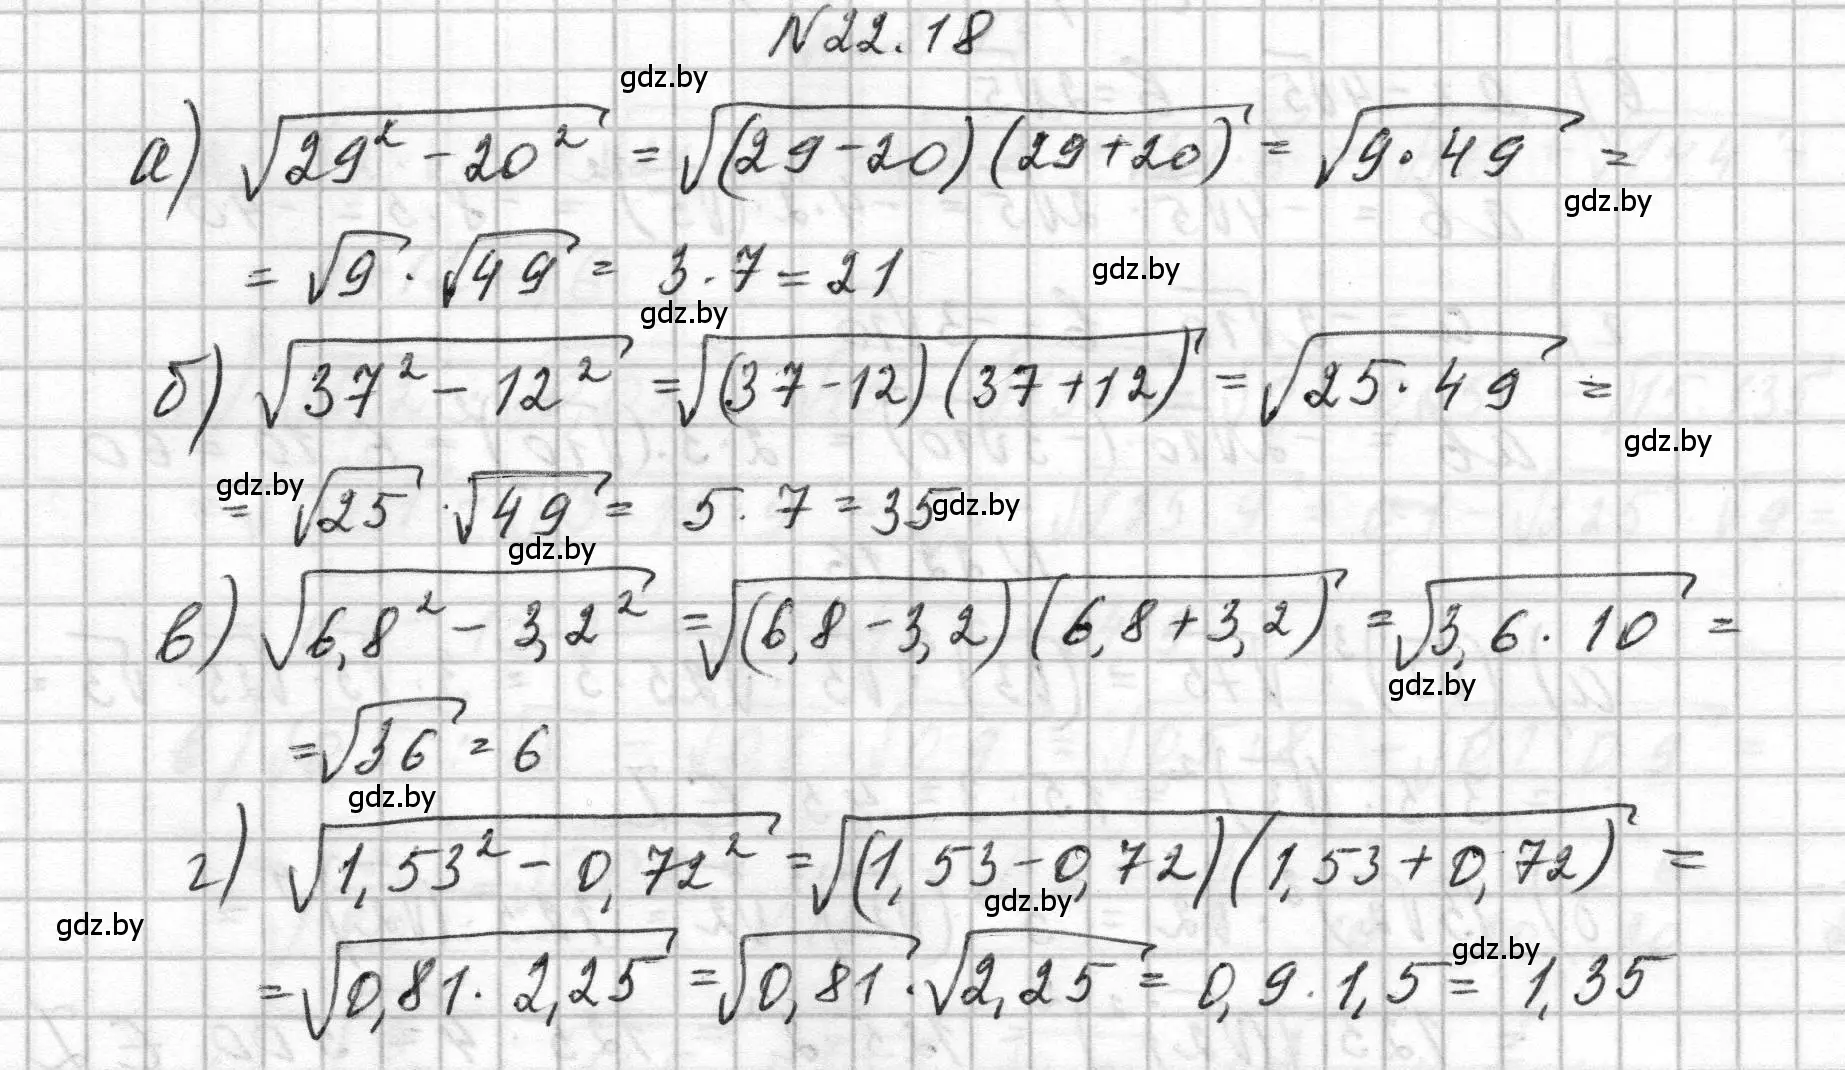 №22.18
gdz.by
а) √(29² - 20²) = √((29-20)(29+20)) = √(9·49) =
gdz.by
= √9 · √49 = 3·7 = 21
gdz.by
gdz.by
б) √(37² - 12²) = √((37-12)(37+12)) = √(25·49) =
gdz.by
gdz.by
= √25 · √49 = 5·7 = 35
gdz.by
gdz.by
в) √(6,8² - 3,2²) = √((6,8-3,2)(6,8+3,2)) = √(3,6·10) =
gdz.by
= √36 = 6
gdz.by
г) √(1,53² - 0,72²) = √((1,53-0,72)(1,53+0,72)) =
gdz.by
gdz.by
gdz.by
= √(0,81·2,25) = √0,81 · √2,25 = 0,9·1,5 = 1,35